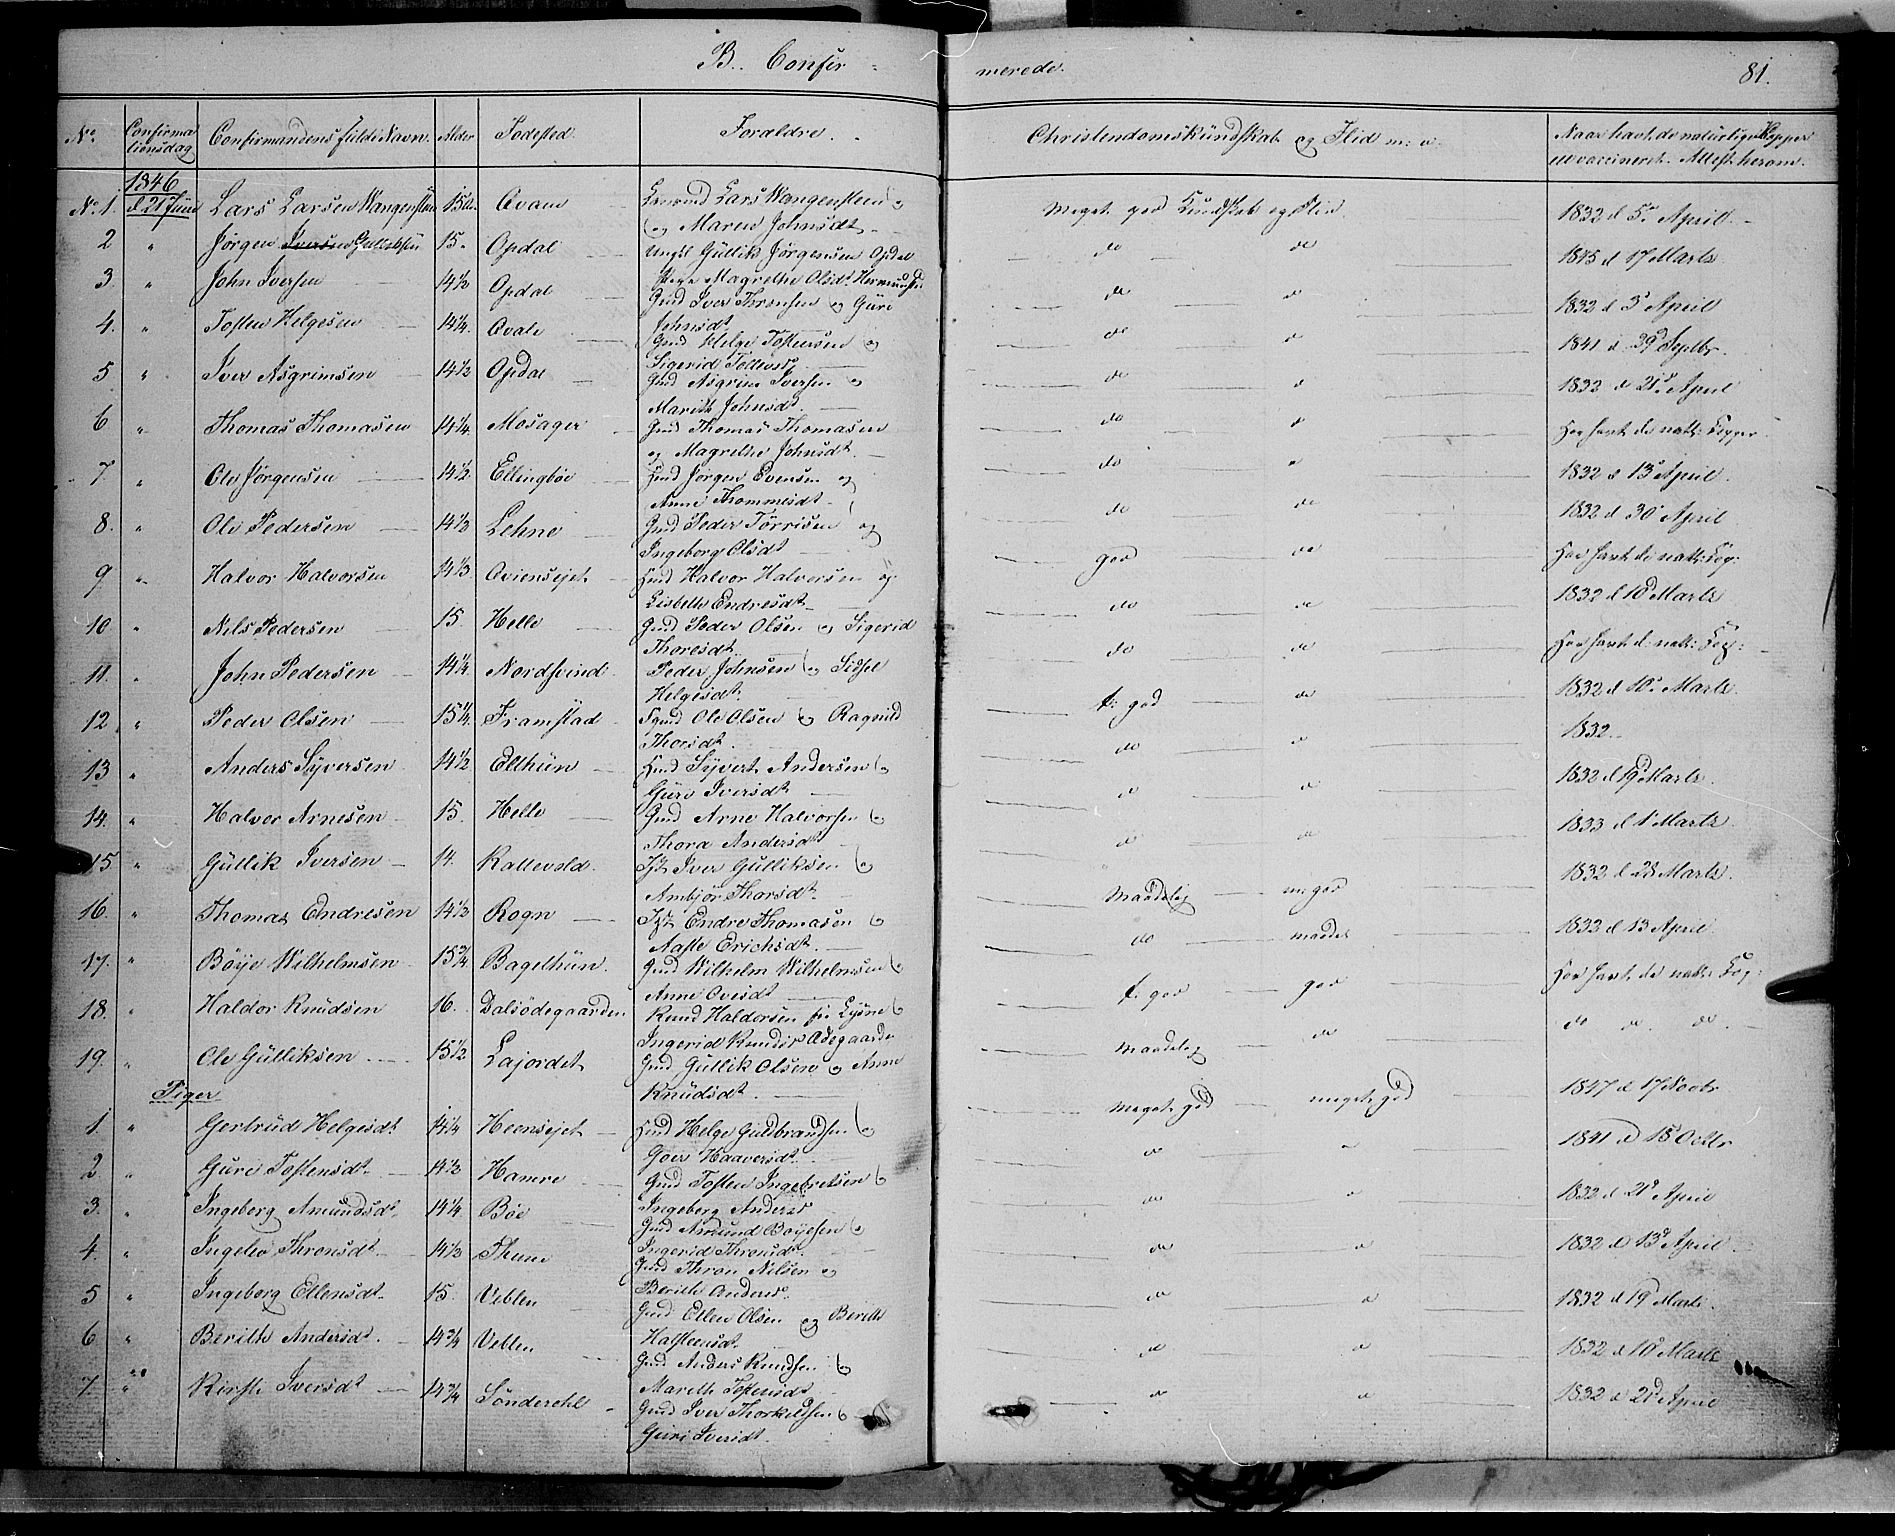 B. Confir-
merede.
81.
No
Confirma
tionsdag
Confirmandens fulde Navn.
Alder
Fødested.
Forældre.
Christendomskundskab og Flid m: v.
Naar havt de naturlige Kopper
el vaccineret. Attest herom.
1846
No 1. d 21 Juni Lars Larsen Wangensteen 15 Qvam Lars Wangensteen og Meget god Kundskab og Flid 1832 d 5 April
og Maren Johnsdt
2 " Jørgen Iversen Gulliksen 15. Opdal Gullik Jørgensen Opdal do do 1845 d 17 Marts
Magrethe Olsdt
3. " John Iversen 14½ Opdal Gmd Iver Thronsen og Guri do do 1832 d 3 April
Johnsdt
4. " Tosten Helgesen 14¼ Gmd Helge Tostensen og do do 1841 d 29 Septbr.
Sigerid
5 " Iver Asgrimsen 14½ Opdal Gmd Asgrim Iversen og do do 1832 d 21 April
Marith Johnsdt.
6 " Thomas Thomasen 14¼ Mosager Gmd Thomas Thomasen do do Har havt de natl: Kopper
og Magrethe Johnsdt.
7 " Ole Jørgensen 14½ Ellingbøe Hmd Jørgen Evensen og do do 1832 d 13 April
Anne
8. " Ole Pedersen 14½ Lehne Gmd Peder Torrisen og do do 1832 d 30 April
Ingeborg Olsdt
9 " Halvor Halvorsen 14½ Qviensejet Hmd Halvor Halvorsen og god do Har havt de natl: Kop:
Lisbeth Endresdt
10 " Nils Pedersen 15. Helle Gmd Peder Olsen og Sigerid do do 1832 d 10 Marts
Thoresdt
11. " John Pedersen 14¼ Nordsvind Peder Johnsen og Sidsel do do Har havt d natl: Kop:
Helgesdt
12 " Peder Olsen 15¼ Framstad Ole Olsen og Ragnild t: god do 1832 d 10 Marts.
Thorsdt.
13 " Anders Syversen 14½ Elthun Hmd Syvert Andersen og do do 1832
Guro Iversdt
14. " Halvor Arnesen 15. Helle Gmd Arne Halvorsen og do do 1832 d 19 Marts
Thora Andersdt
15 " Gullik Iversen 14. Kattevold. Iver Gulliksen og do do 1833 d 1 Marts
Ambjør Thorsdt.
16. " Thomas Endresen 14½ Rogn Endre Thomasen og Maadelig m: god 1832 d 28 Marts
Aaste Erichsdt.
17. " Bøye Wilhelmsen 15¾ Bagethun. Gmd Wilhelm Wilhelmsen og do maadel 1832 d 13 April
Anne Ovesdt
18. " Haldor Knudsen 16. Dalsødegaarden Knud Haldorsen fra Lysne og t. god god Har havt de natl: Kop:
Ingerid Knudsdt Ødegaarden
19. " Ole Gulliksen 15½ Lajordet Gmd Gullik Olsen og Anne Maadelig do do do do
Knudsdt.
Piger
1. " Gertrud Helgesdt. 14¼ Heensejet Hmd Helge Guldbrandsen og Meget god meget god 1847 d 17 Novbr
Goer Haaversdt.
2 " Guri Tostensdt. 14½ Hamre Gmd Tosten Ingebretsen og do " 1841 d 15 Octbr
Ingeberg Andersdt
3. " Ingeborg Amundsdt. 14¼ Bøe Gmd Amund Bøyesen og do " 1832 d 21 April
Ingerid Thronsdt.
4. " Ingebor Thronsdt. 14½ Thune Gmd Thron Nilsen og do do 1832 d 13 April
Berith Andersdt.
5 " Ingeborg Ellensdt. 15. Veblen Gmd Ellen Olsen og Berith do do 1832 d 19 Marts.
Halsteensdt.
6 " Berith Andersdt. 14¾ Veblen Gmd Anders Knudsen og do do 1832 d 10 Marts
Marith Tostensdt
7 " Kirsti Iversdt 14¾ Sønderehl Gmd Iver Thorkildsen og do do 1832 d 21 April
Guri Iversdt.